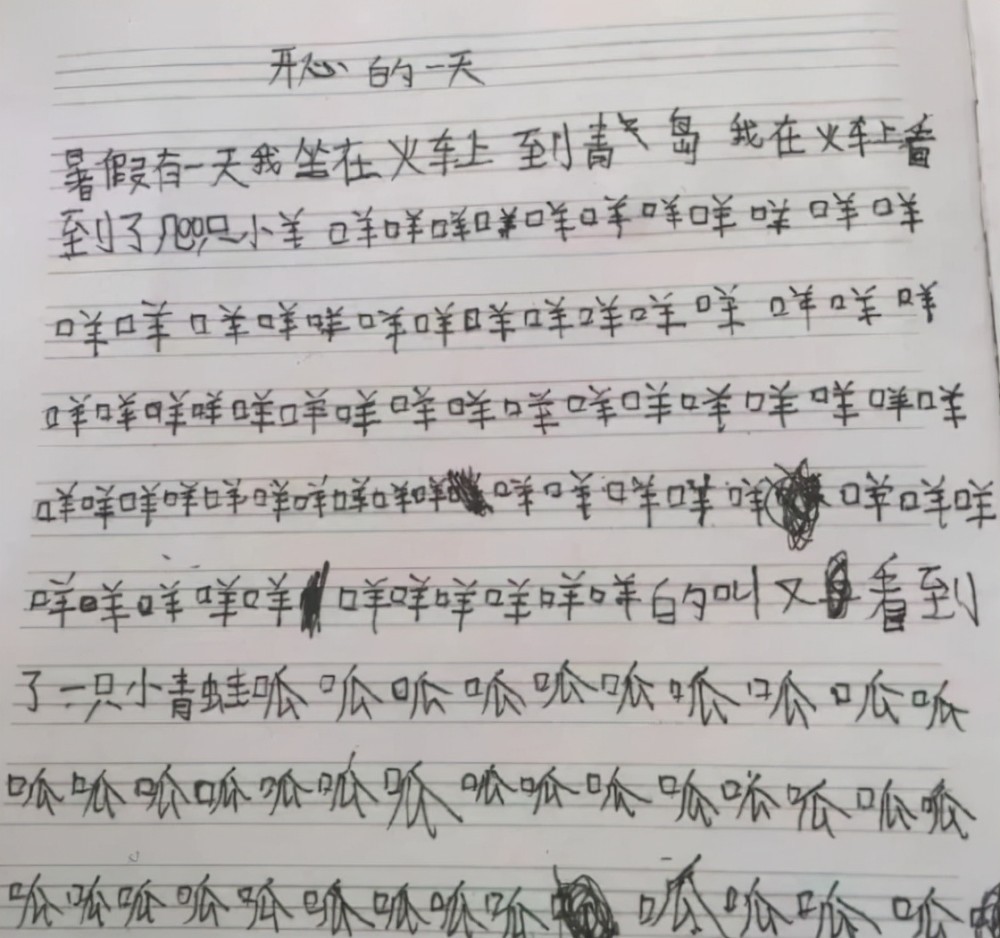 开心的一天
暑假有一天我坐在火车上到青岛我在火车上看
到了几只小羊咩咩咩咩咩咩咩咩咩咩咩
咩咩咩咩咩咩咩咩咩咩咩咩咩咩咩
咩咩咩咩咩咩咩咩咩咩咩咩咩咩咩咩咩
咩咩咩咩咩咩咩咩咩咩咩咩咩咩咩咩咩咩
咩咩咩咩咩咩咩咩咩咩咩的叫又看到
了一只小青蛙呱呱呱呱呱呱呱呱呱呱
呱呱呱呱呱呱呱呱呱呱呱呱呱呱呱
呱呱呱呱呱呱呱呱呱呱呱呱呱